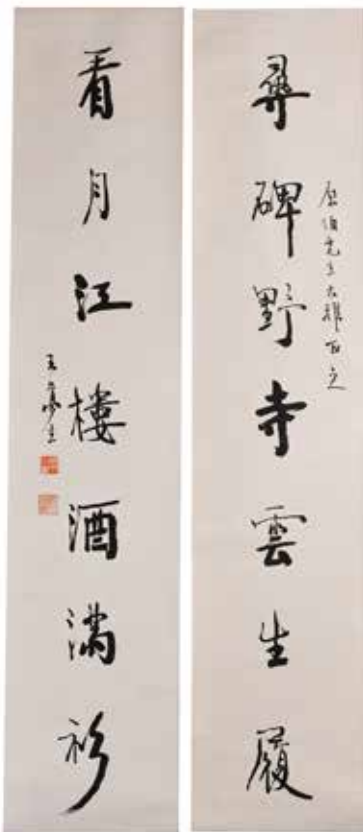 尋碑野寺雲生履
伯先生大雅正之
看月江樓酒滿衫
王